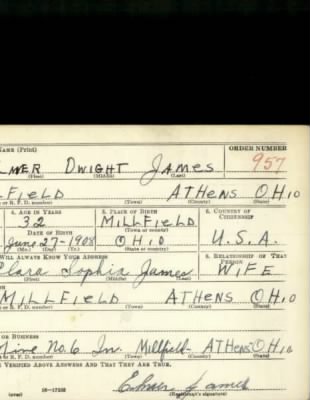 NAME (Print) ORDER NUMBER
DWIGHT JAMES 957
(First) (Middle) (Last)
FIELD ATHENS OHIO
or R. F. D. number) (Town) (County) (State)
3. AGE IN YEARS 5. PLACE OF BIRTH 6. COUNTRY OF CITIZENSHIP
32 MILLFIELD
DATE OF BIRTH (Town or county)
June-27-1908 OHIO U.S.A.
(Mo.) (Day) (Yr.) (State or country)
WILL ALWAYS KNOW YOUR ADDRESS 8. RELATIONSHIP OF THAT PERSON
Clara Sophia James WIFE
(First) (Middle) (Last)
MILLFIELD ATHENS OHIO
or R. F. D. number) (Town) (County) (State)
OR BUSINESS
No. 6 Millfield ATHENS OHIO
or R. F. D. number) (Town) (County) (State)
VERIFIED ABOVE ANSWERS AND THAT THEY ARE TRUE.
(over) 16—17105 (Registrant's signature)
Elmer James